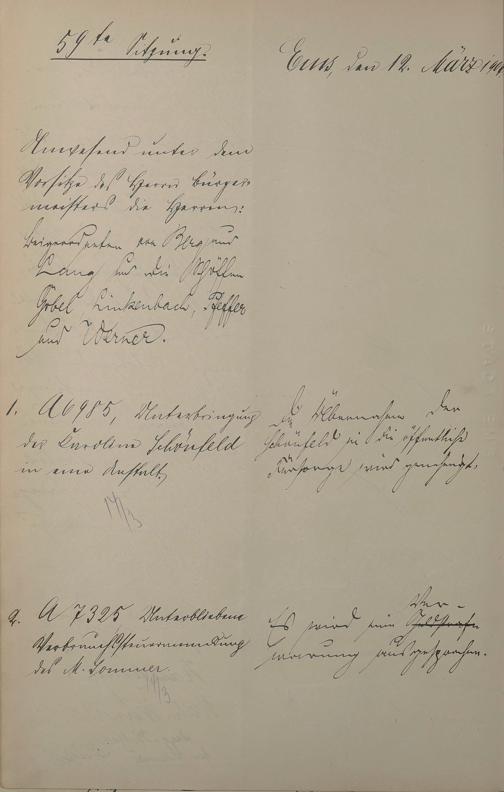 59te Sitzung.
Ems, den 12. März 19
Anwesend unter dem
Vorsitze des Herrn Bürger-
meisters die Herren:
Beigeordneten von Berg und
Lang und die Schöffen
Göbel, Linkenbach, Pfeffer
und Werner.
1. A 6985, Unterbringung
der Karoline Schönfeld
in eine Anstalt.
17/3
Die Übernahme der
Schönfeld in die öffentliche
Fürsorge wird genehmigt.
2. A 7325 Unterbliebene
Verbrauchssteueranmeldung
des M. Sommer.
17/3
Ver-
Es wird eine Geldstrafe
warnung ausgesprochen.